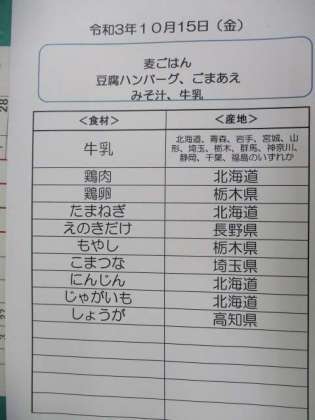 令和3年10月15日（金）
麦ごはん
豆腐ハンバーグ、ごまあえ
みそ汁、牛乳
＜食材＞ ＜産地＞
牛乳 北海道、青森、岩手、宮城、山
形、埼玉、栃木、群馬、神奈川、
静岡、千葉、福島のいずれか
鶏肉 北海道
鶏卵 栃木県
たまねぎ 北海道
えのきだけ 長野県
もやし 栃木県
こまつな 埼玉県
にんじん 北海道
じゃがいも 北海道
しょうが 高知県
28